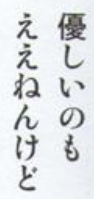 優しいのも
ええねんけど